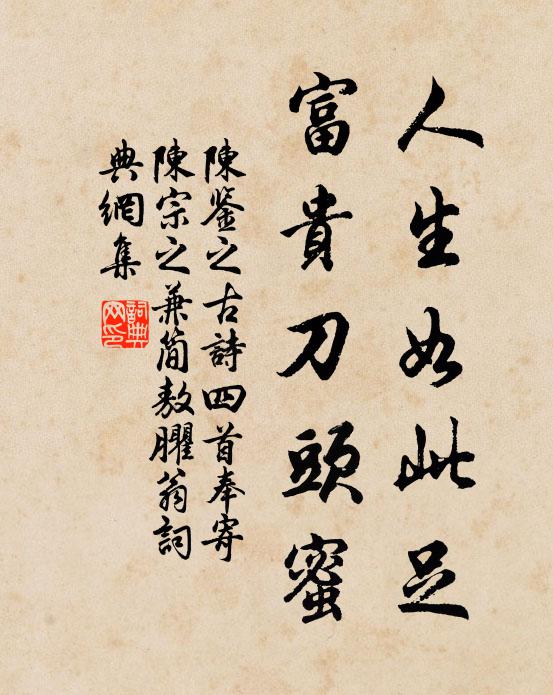 人生如此足
富貴刀頭蜜
陳鑒之古詩四首奉寄
陳宗之兼簡敖臞翁詞
典網集
詞典網印